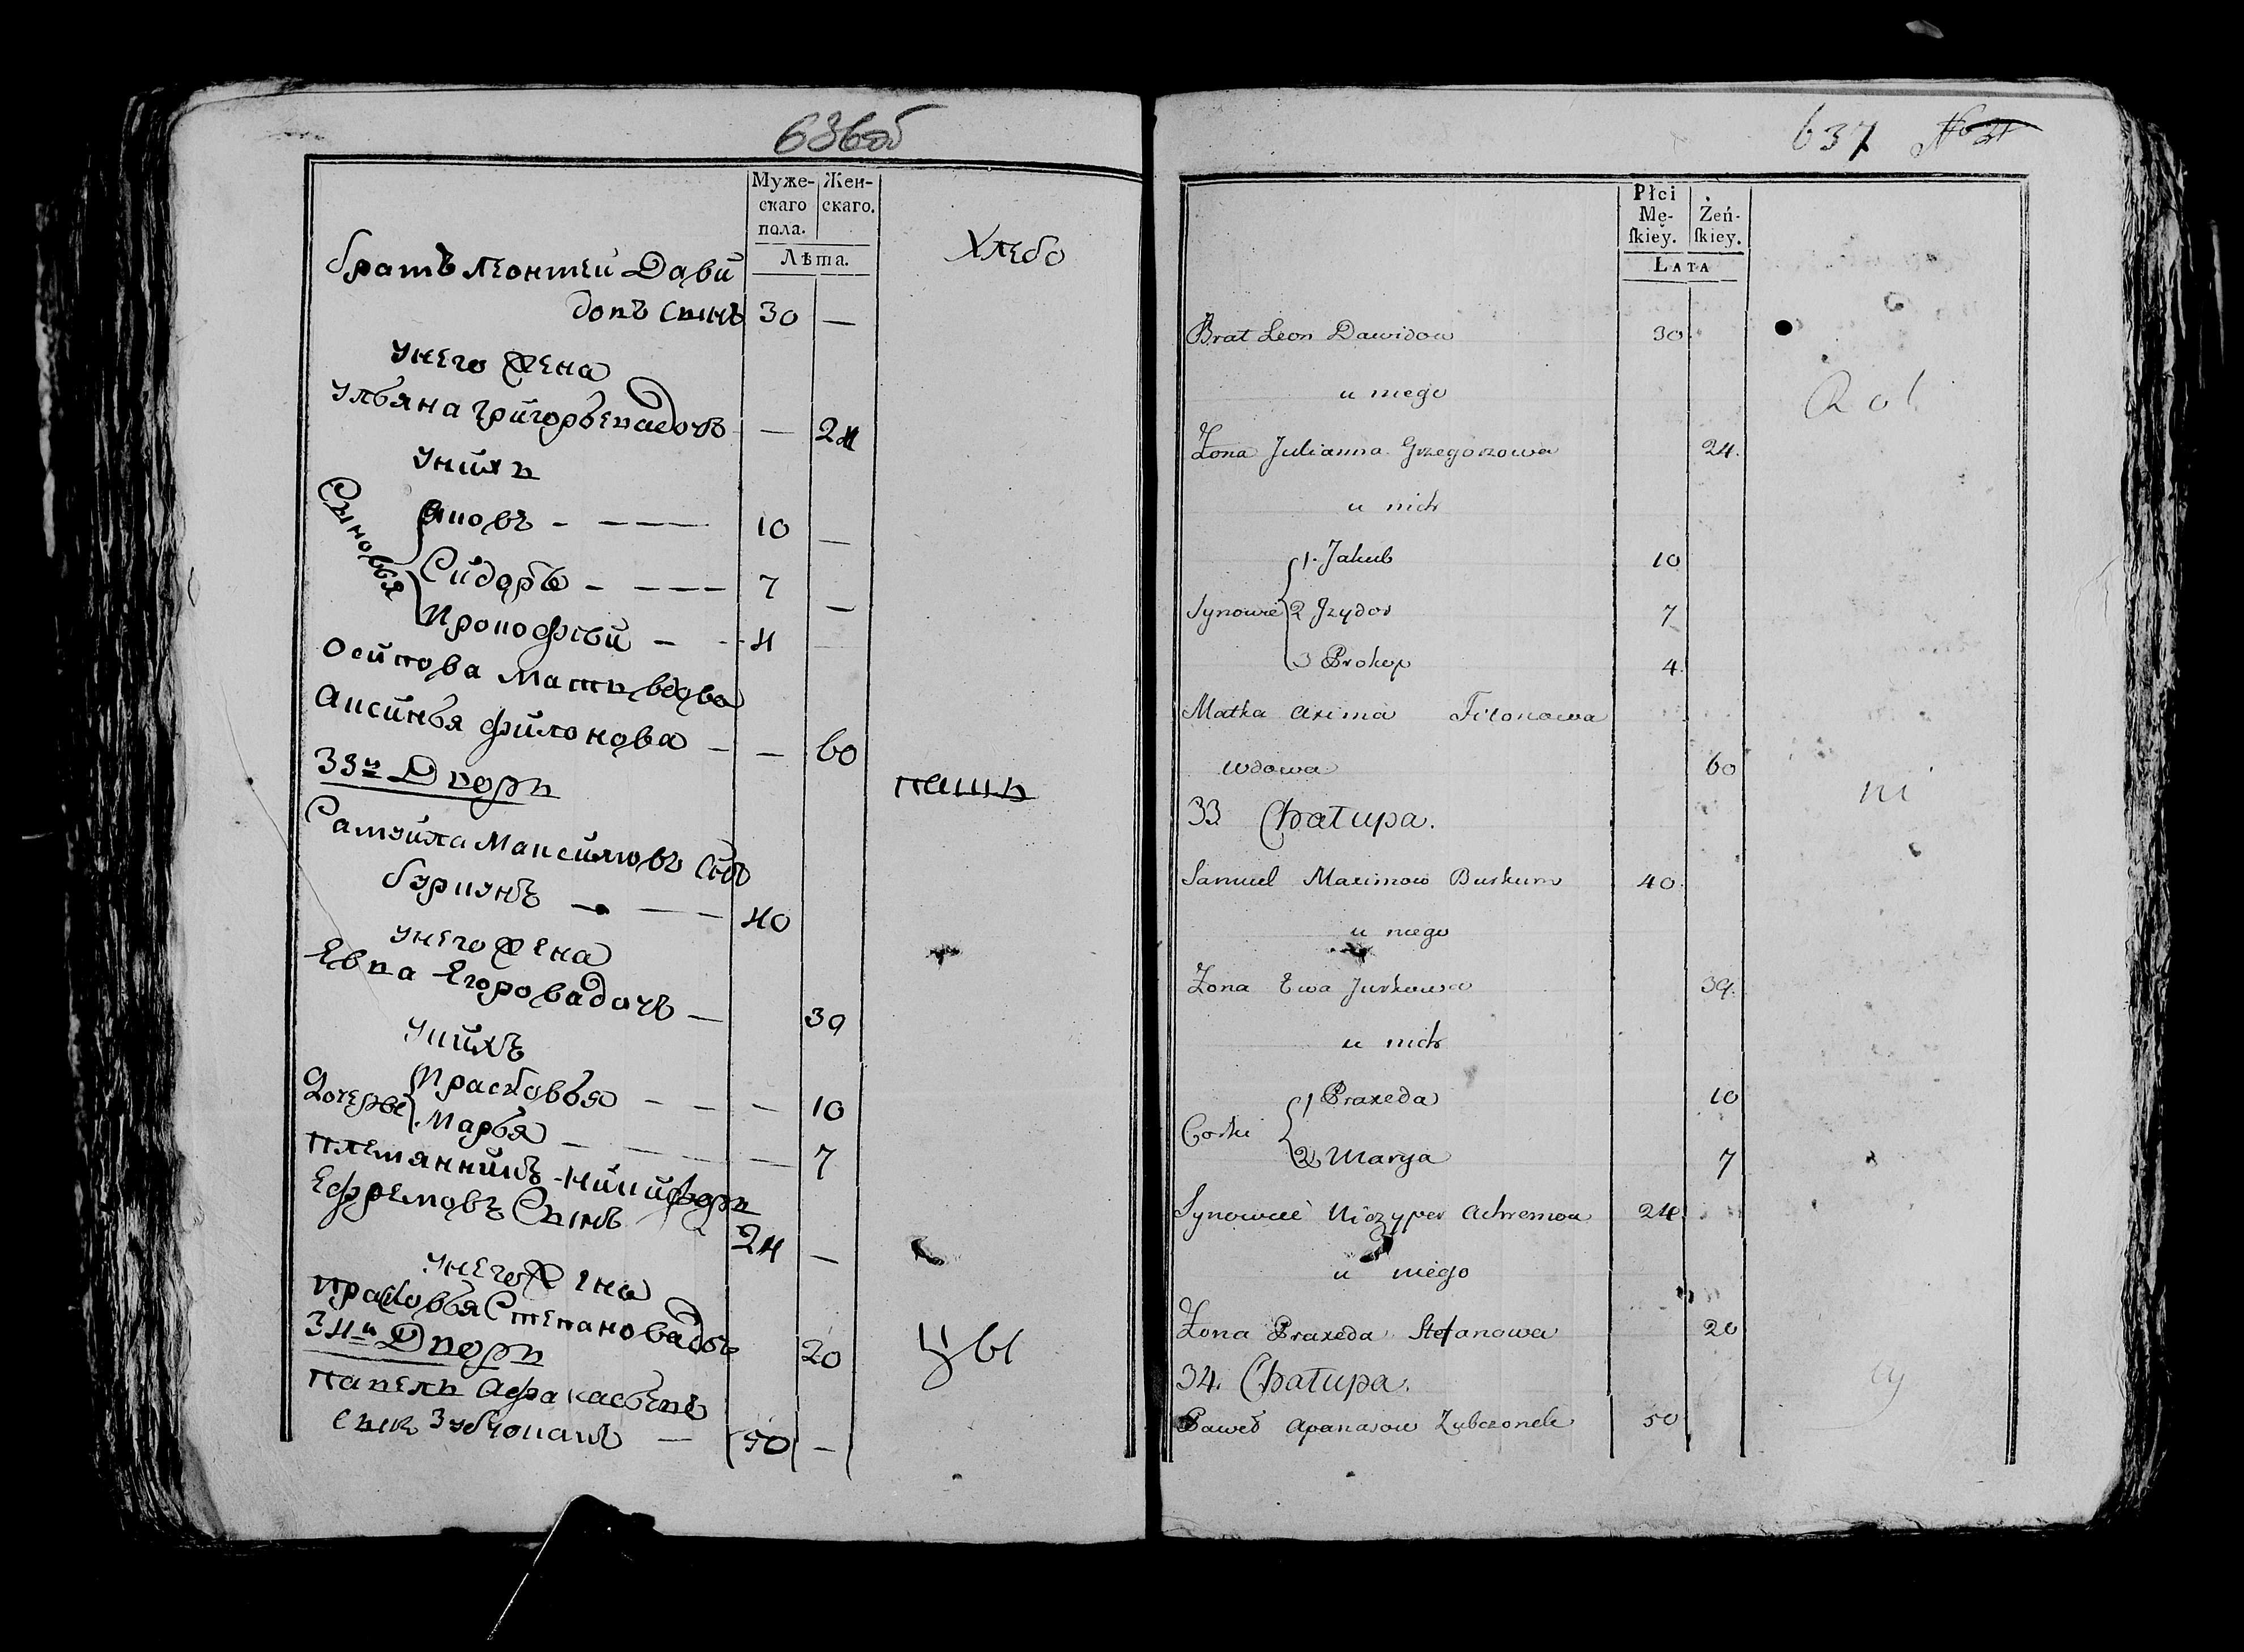 636об
Муже-
скаго
пола.
Жен-
скаго.
Лѣта.
братъ Леонтей Дави
довъ Сынъ 30 —
Хлебо
унего жена
Ульяна Григорьевадочь — 24
Унихъ
Сыновья
Яковъ - - - - 10 —
Сидоръ - - - - 7 —
Прокофѣй - - - 4
Осипова Мать вдова
Аксинья филонова - — 60
33й Дворъ
пашъ
Самуйла Максимовъ Снъ
буркунъ - - - 40
унего жена
Евва Егоровадочь — 39
Унихъ
Дочерьве
Прасковья - - — 10
Марья - - - — 7
племянникъ Никифоръ
Ефремовъ Сынъ 24 —
унего жена
прасковья Степановадочь 20
цы
34й Дворъ
павелъ Афанасьевъ
Снъ Зубчонакъ — 50 —
637 №31
Płci
Mę-
ſkiey.
Żeń-
ſkiey.
LATA
Brat Leon Dawidow 30
u niego
Rol
Żona Julianna Grzegorzowa 24.
u nich
Synowie
1. Jakub 10
2 Jzydor 7
3 Prokop 4.
Matka Axima Filonowa
wdowa 60
ni
33 Chałupa.
Samuel Maximow Burkun 40.
u niego
Żona Ewa Jurkowa 39.
u nich
Corki
1 Praxeda 10
2 Marya 7
Synowiec Niczyper Achremow 24.
u niego
Żona Praxeda Stefanowa 20
34. Chałupa.
cy
Paweł Apanasow Zubczonek 50